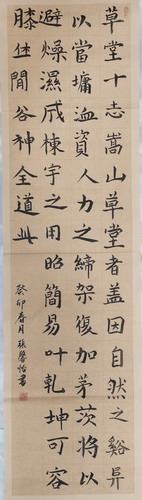 草堂十志嵩山草堂者盖因自然之谿阜
以當墉洫資人力之締架復加茅茨將以
避燥濕成棟宇之用昭簡易叶乾坤可容
膝休閒谷神全道此
癸卯春月張馨怡書